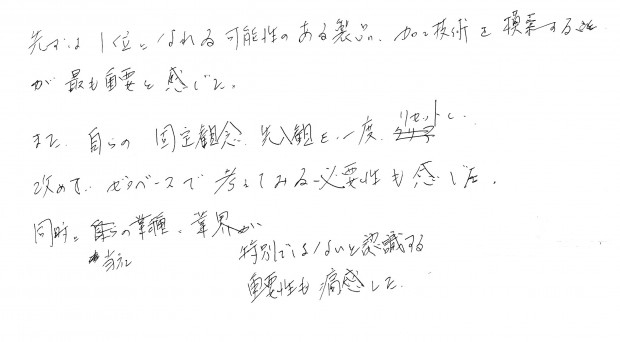 先ずは1位になれる可能性のある製品、加工技術を模索する事
が最も重要と感じた。
また、自らの固定観念、先入観を一度、リセットし、
改めて、ゼロベースで考えてみる必要性も感じた。
同時に自らの業種、業界が
当社
特別ではないと認識する
重要性も痛感した。